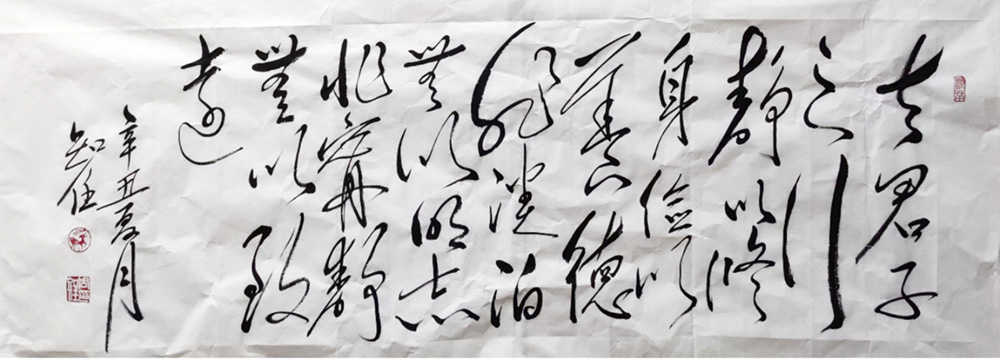 夫君子
之行
静以修
身俭以
养德
非澹泊
无以明志
非宁静
无以致
远
辛丑夏月
知任